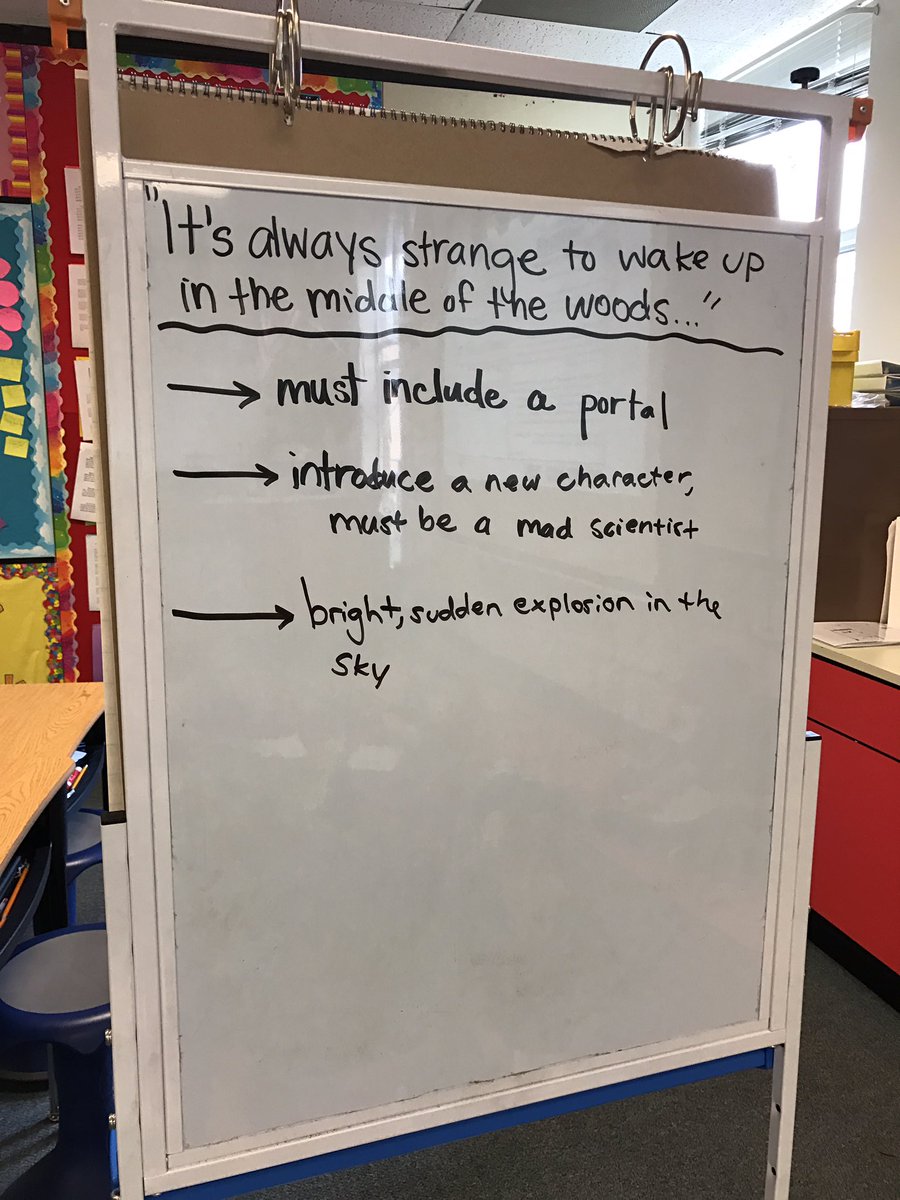 "It's always strange to wake up
in the middle of the woods..."
→ must include a portal
→ introduce a new character,
must be a mad scientist
→ bright, sudden explosion in the
sky